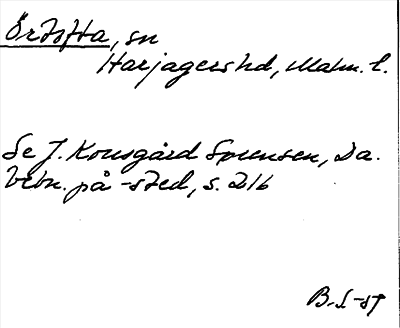 Örtofta, sn
Harjagers hd, Malm. l.
Se J. Kousgård Sørensen, Da.
bebn. på -sted, s. 216
B. S-g